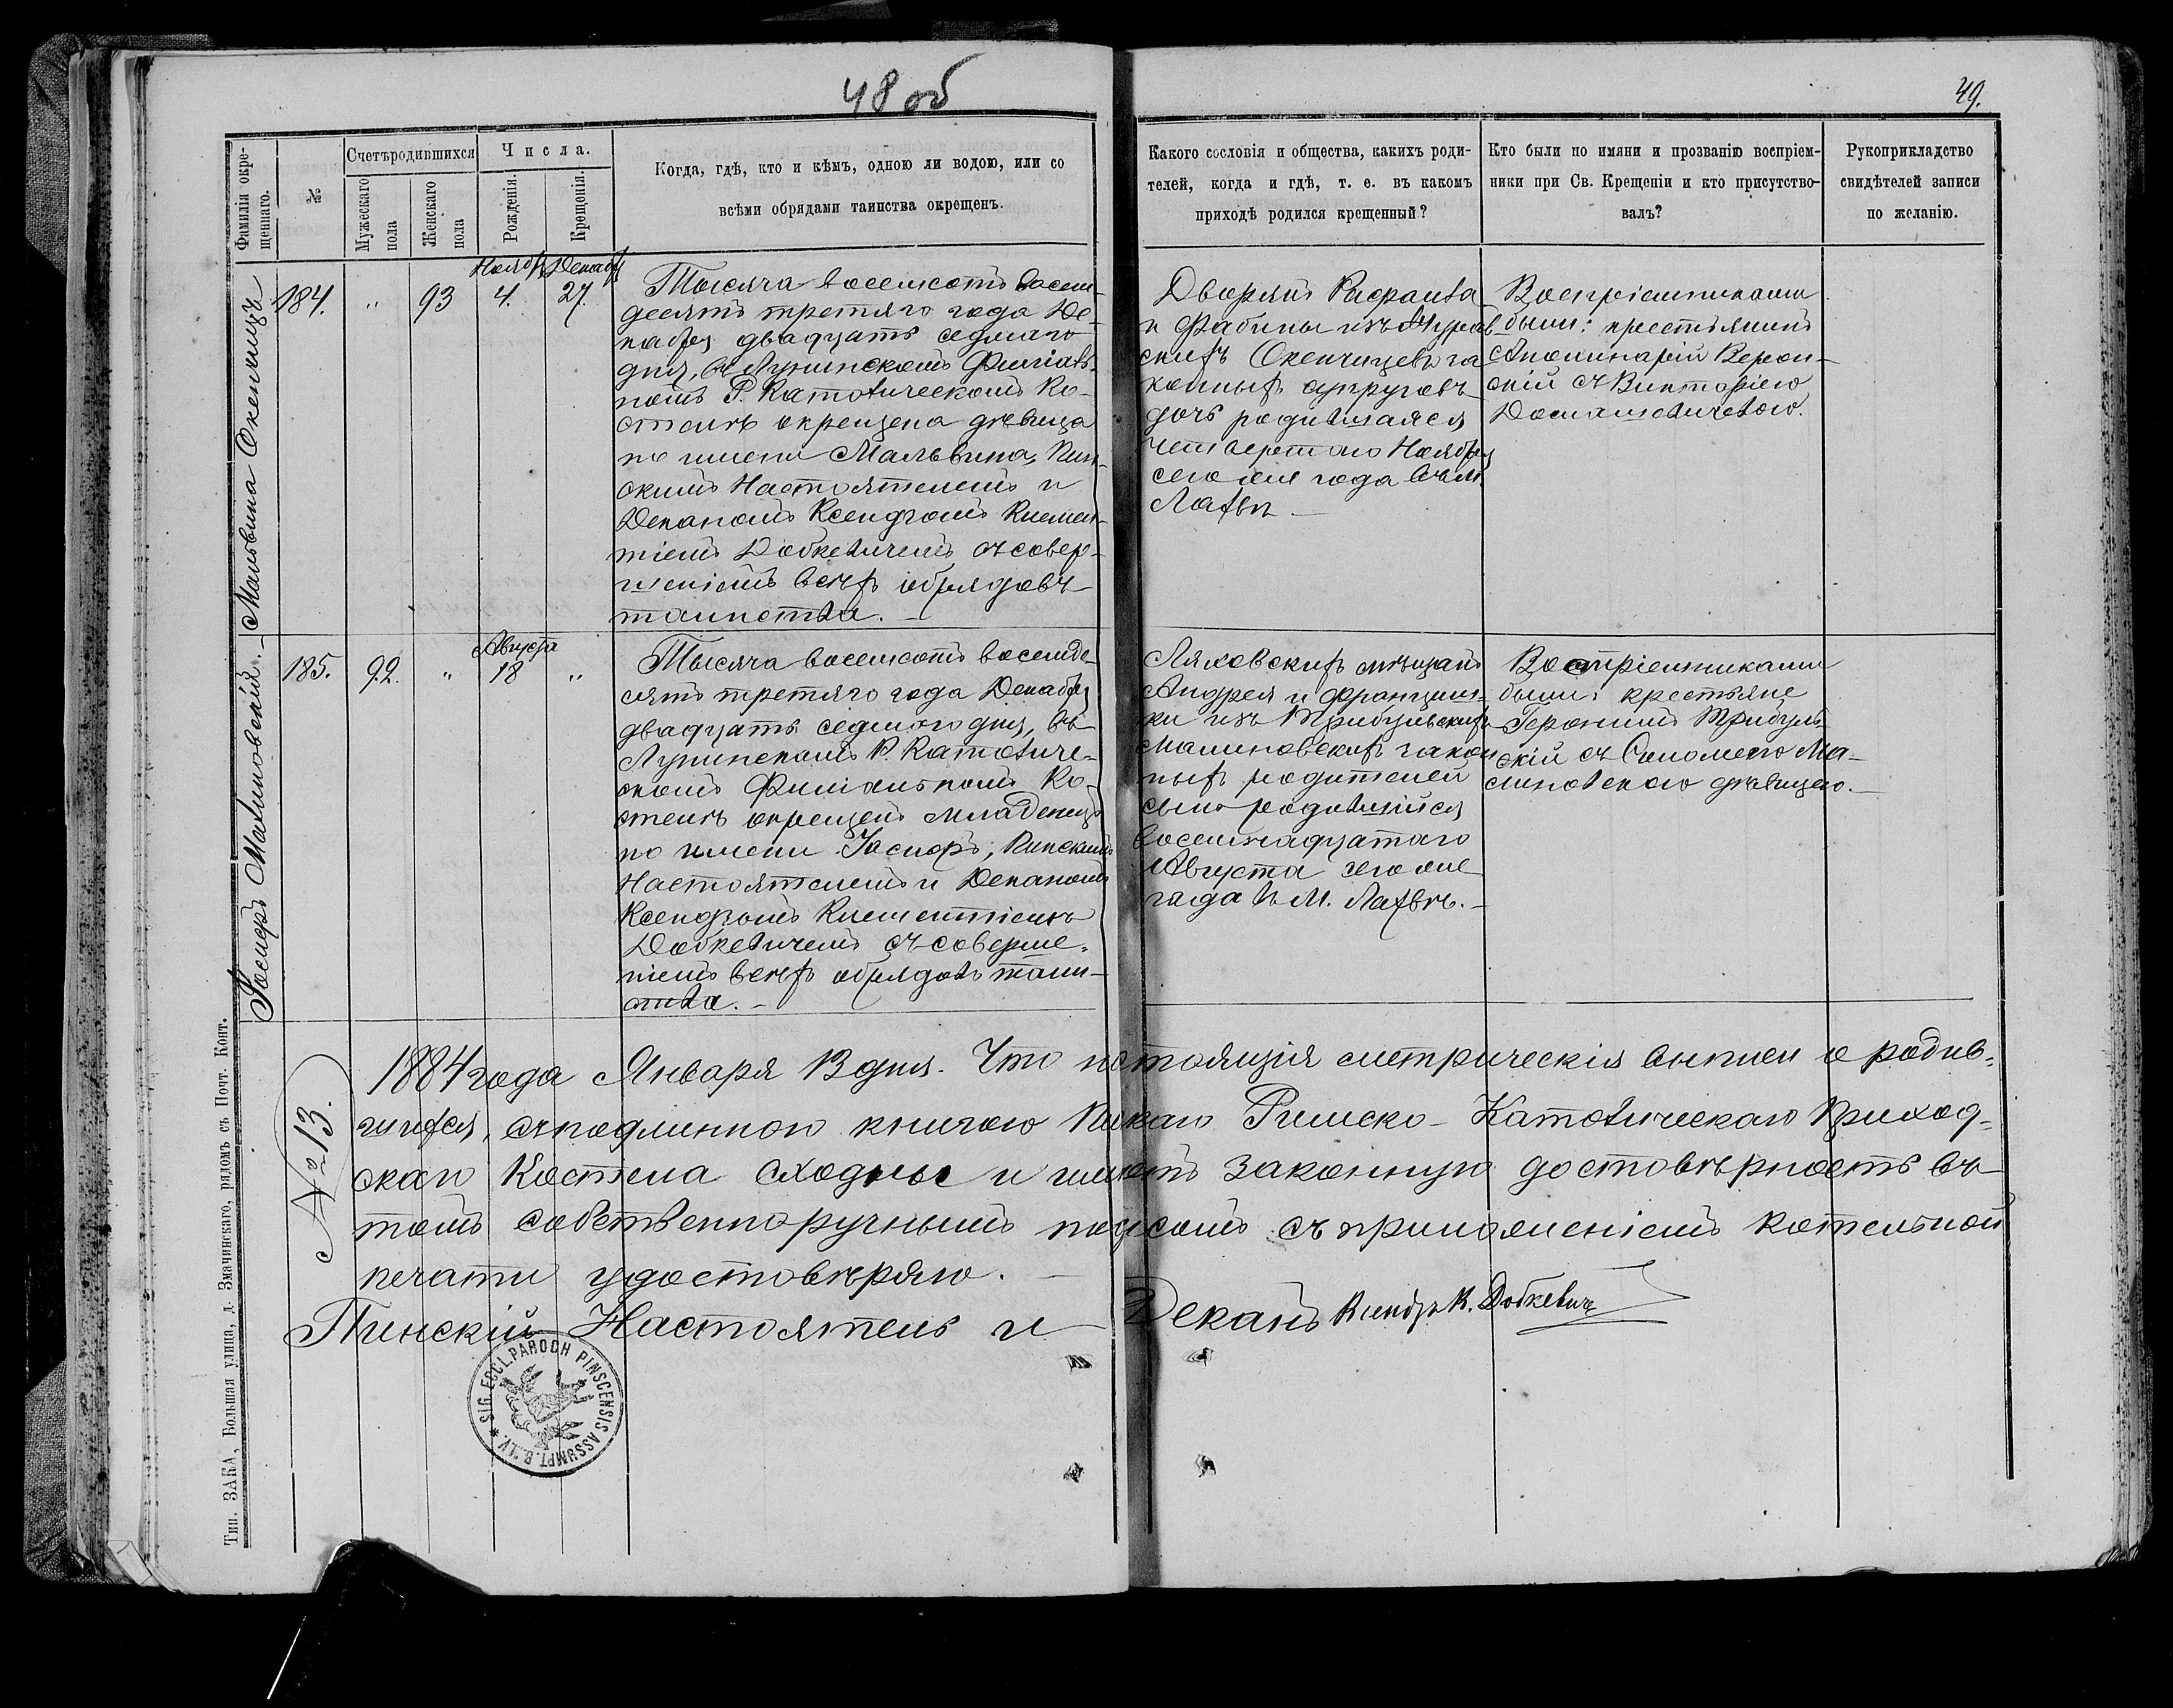 48 об
49.
Фамилія окре-
щеннаго.
№
Счетъ родившихся
Мужескаго
пола
Женскаго
пола
Числа.
Рожденія.
Крещенія.
Когда, гдѣ, кто и кѣмъ, одною ли водою, или со
всѣми обрядами таинства окрещенъ.
Какого сословія и общества, какихъ роди-
телей, когда и гдѣ, т. е. въ какомъ
приходѣ родился крещенный?
Кто были по имяни и прозванію воспріем-
ники при Св. Крещеніи и кто присутство-
валъ?
Рукоприкладство
свидѣтелей записи
по желанію.
Мальвина Окенчицъ
184.
"
93
Ноябр.
4.
Декабр.
27.
Тысяча восемсотъ восем-
десятъ третяго года Де-
кабря двадцать седмаго
дня, въ Лунинскомъ Филіаль-
номъ Р. Католическомъ Ко-
стелѣ окрещена дѣвица
по имени Мальвина, Пин-
скимъ Настоятелемъ и
Деканомъ Ксендзомъ Клемен-
тіемъ Добкевичемъ съ совер-
шеніемъ всѣхъ обрядовъ
таинства.
Дворянъ
и Фабіны изъ
скихъ Окенчицевъ за
конныхъ супруговъ
дочь родившаяся
четвертого Ноября
сего же года въ м.
Лахвѣ
Воспріемниками
были: крестьянинъ
Аполинарій
скій съ Викторіею
Домашевичевою.
Госперъ Малиновскій.
185.
92.
"
Августа
18
"
Тысяча восемсотъ восемде-
сятъ третяго года Декабря
двадцать седмого дня, въ
Лунинскомъ Р. Католиче-
скомъ Филіальномъ Ко-
стелѣ окрещенъ младенецъ
по имени Госперъ, Пинскимъ
Настоятелемъ и Деканомъ
Ксендзомъ Клементіемъ
Добкевичемъ съ соверше-
ніемъ всѣхъ обрядовъ таин-
ства.
Ляховскихъ мѣщанъ
Андрея и Францишк-
ки изъ Трибульскихъ
Малиновскихъ закон
ныхъ родителей
сынъ родившійся
восемнадцатаго
Августа сего же
года въ М. Лахвѣ.
Воспріемниками
были: крестьяне
Геронимъ Трибуль-
скій съ Саломеею Ма-
линовскою дѣвицею.
№ 13.
1884 года Января 13 дня. Что настоящія метрическія выписи о родив-
шихся, съ подлинною книгою Пинскаго Римско-Католическаго Приход-
скаго Костела сходны и имѣютъ законную достовѣрность въ
томъ собственноручнымъ подписомъ съ приложеніемъ костельной
печати удостовѣряю.
Пинскій Настоятель и Деканъ Ксендзъ К. Добкевичъ
SIG. ECCL. PAROCH PINSCENSIS ASSUMPT. B. M. V.
Тип. ЗАКА, Большая улица, д. Змачинскаго, рядомъ съ Почт. Конт.